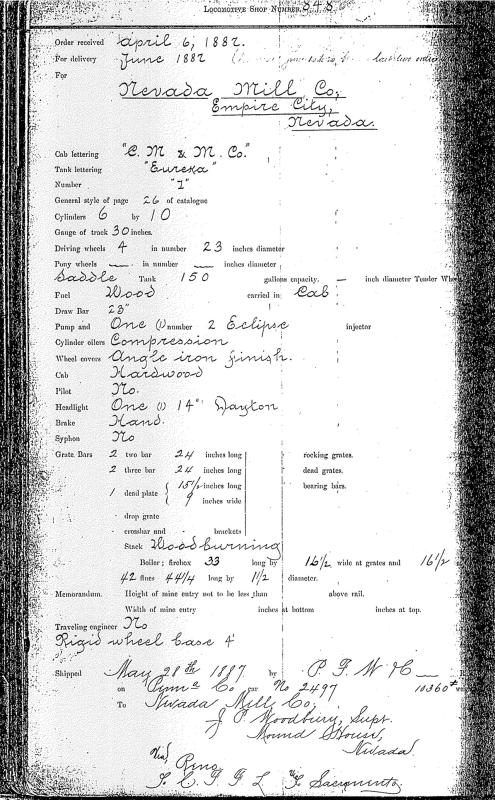 LOCOMOTIVE SHOP NUMBER 848
Order received April 6, 1882.
For delivery June 1882
For
Nevada Mill Co,
Empire City,
Nevada.
Cab lettering "C. M & M. Co."
Tank lettering "Eureka"
Number "1"
General style of page 26 of catalogue
Cylinders 6 by 10
Gauge of track 30 inches.
Driving wheels 4 in number 23 inches diameter
Pony wheels — in number — inches diameter
Saddle Tank 150 gallons capacity. — inch diameter Tender Whee
Fuel Wood carried in Cab
Draw Bar 23"
Pump and One (1) number 2 Eclipse injector
Cylinder oilers Compression
Wheel covers Angle iron finish.
Cab Hardwood
Pilot No.
Headlight One (1) 14" Dayton
Brake Hand.
Syphon No
Grate Bars 2 two bar 24 inches long rocking grates.
2 three bar 24 inches long dead grates.
1 dead plate { 15 1/2 inches long bearing bars.
9 inches wide
drop grate
crossbar and brackets
Stack Wood burning
Boiler; firebox 33 long by 16 1/2 wide at grates and 16 1/2
42 flues 44 1/4 long by 1 1/2 diameter.
Memorandum. Height of mine entry not to be less than above rail.
Width of mine entry inches at bottom inches at top.
Traveling engineer No
Rigid wheel base 4'
Shipped May 28th 1887 by P. F. W & C
on Penna Co car No 2497 10360#
To Nevada Mill Co,
J P Woodbury, Supt.
Mound House,
Nevada.
Via Reno